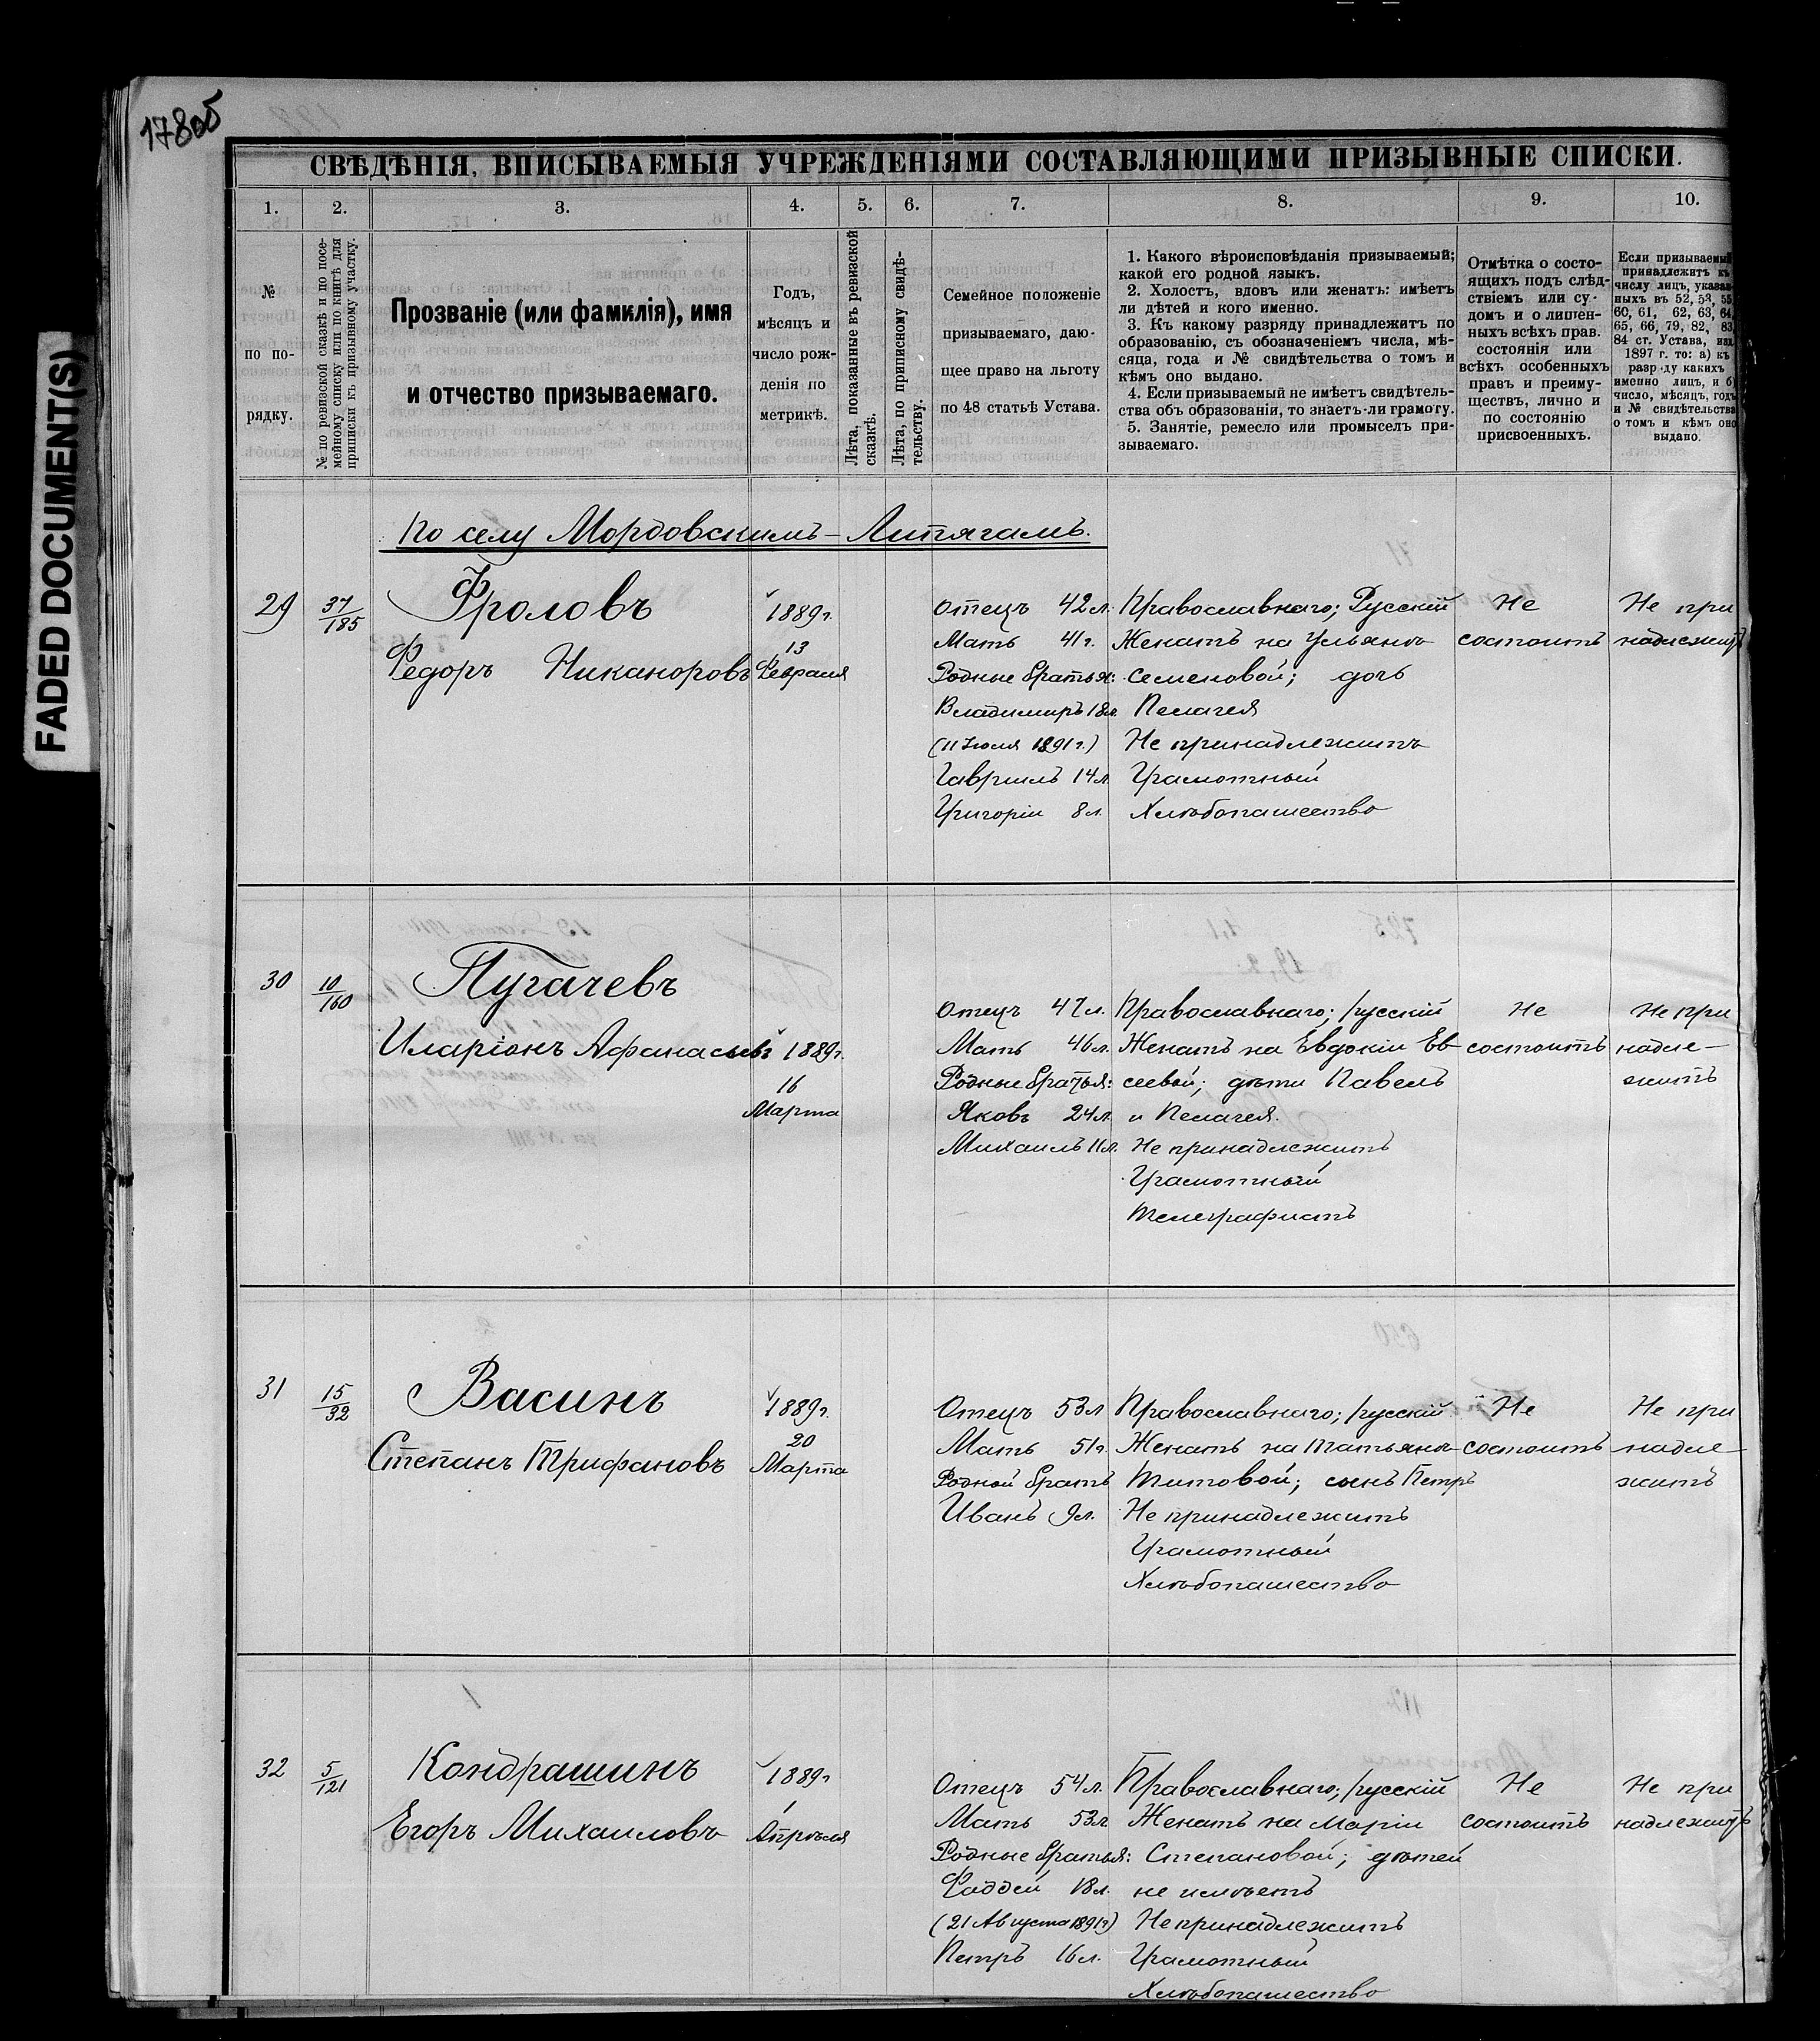 178об
FADED DOCUMENT(S)
СВѢДѢНІЯ, ВПИСЫВАЕМЫЯ УЧРЕЖДЕНІЯМИ СОСТАВЛЯЮЩИМИ ПРИЗЫВНЫЕ СПИСКИ.
1. 2. 3. 4. 5. 6. 7. 8. 9. 10.
№
по по-
рядку.
№ по ревизской сказкѣ и по посе-
мейному списку или по книгѣ для
приписки къ призывному участку.
Прозваніе (или фамилія), имя
и отчество призываемаго.
Годъ,
мѣсяцъ и
число рож-
денія по
метрикѣ.
Лѣта, показанные въ ревизской
сказкѣ.
Лѣта, по приписному свидѣ-
тельству.
Семейное положеніе
призываемаго, даю-
щее право на льготу
по 48 статьѣ Устава.
1. Какого вѣроисповѣданія призываемый;
какой его родной языкъ.
2. Холостъ, вдовъ или женатъ: имѣетъ
ли дѣтей и кого именно.
3. Къ какому разряду принадлежитъ по
образованію, съ обозначеніемъ числа, мѣ-
сяца, года и № свидѣтельства о томъ и
кѣмъ оно выдано.
4. Если призываемый не имѣетъ свидѣтель-
ства объ образованіи, то знаетъ-ли грамоту.
5. Занятіе, ремесло или промыселъ при-
зываемаго.
Отмѣтка о состо-
ящихъ подъ слѣд-
ствіемъ или су-
домъ и о лишен-
ныхъ всѣхъ прав.
состоянія или
всѣхъ особенныхъ
правъ и преиму-
ществъ, лично и
по состоянію
присвоенныхъ.
Если призываемый
принадлежитъ къ
числу лицъ, указан-
ныхъ въ 52, 53, 55,
60, 61, 62, 63, 64,
65, 66, 79, 82, 83,
84 ст. Устава, изд.
1897 г. то: а) къ
разряду какихъ
именно лицъ, и б)
число, мѣсяцъ, годъ
и № свидѣтельства
о томъ и кѣмъ оно
выдано.
По селу Мордовскимъ-Липягамъ.
29
37/185
Фроловъ
Федоръ Никаноровъ
1889г.
13
Февраля
Отецъ 42л.
Мать 41г.
Родные братья:
Владимиръ 18л.
(11 Іюля 1891г.)
Гавріилъ 14л.
Григорій 8л.
Православнаго; Русскій
Женатъ на Ульянѣ
Семеновой; дочь
Пелагея
Не принадлежитъ
Грамотный
Хлѣбопашество
Не
состоитъ
Не при
надлежитъ
30
10/160
Пугачевъ
Иларіонъ Афанасьевъ
1889г.
16
Марта
Отецъ 47л.
Мать 46л.
Родные братья:
Яковъ 24л.
Михаилъ 11л.
Православнаго; русскій
Женатъ на Евдокіи Ев
сеевой; дѣти Павелъ
и Пелагея.
Не принадлежитъ
Грамотный
Телеграфистъ
Не
состоитъ
Не при
надле-
житъ
31
15/32
Васинъ
Степанъ Трифановъ
1889г.
20
Марта
Отецъ 53л
Мать 51г.
Родной братъ
Иванъ 9л.
Православнаго; русскій
Женатъ на Татьянѣ
Титовой; сынъ Петръ
Не принадлежитъ
Грамотный
Хлѣбопашество
Не
состоитъ
Не при
надле-
житъ
32
5/121
Кондрашинъ
Егоръ Михаиловъ
1889г
1
Апрѣля
Отецъ 54л.
Мать 53л
Родные братья:
Фаддей 18л.
(21 Августа 1891г)
Петръ 16л.
Православнаго; русскій
Женатъ на Маріи
Степановой; дѣтей
не имѣетъ
Не принадлежитъ
Грамотный
Хлѣбопашество
Не
состоитъ
Не при
надлежитъ